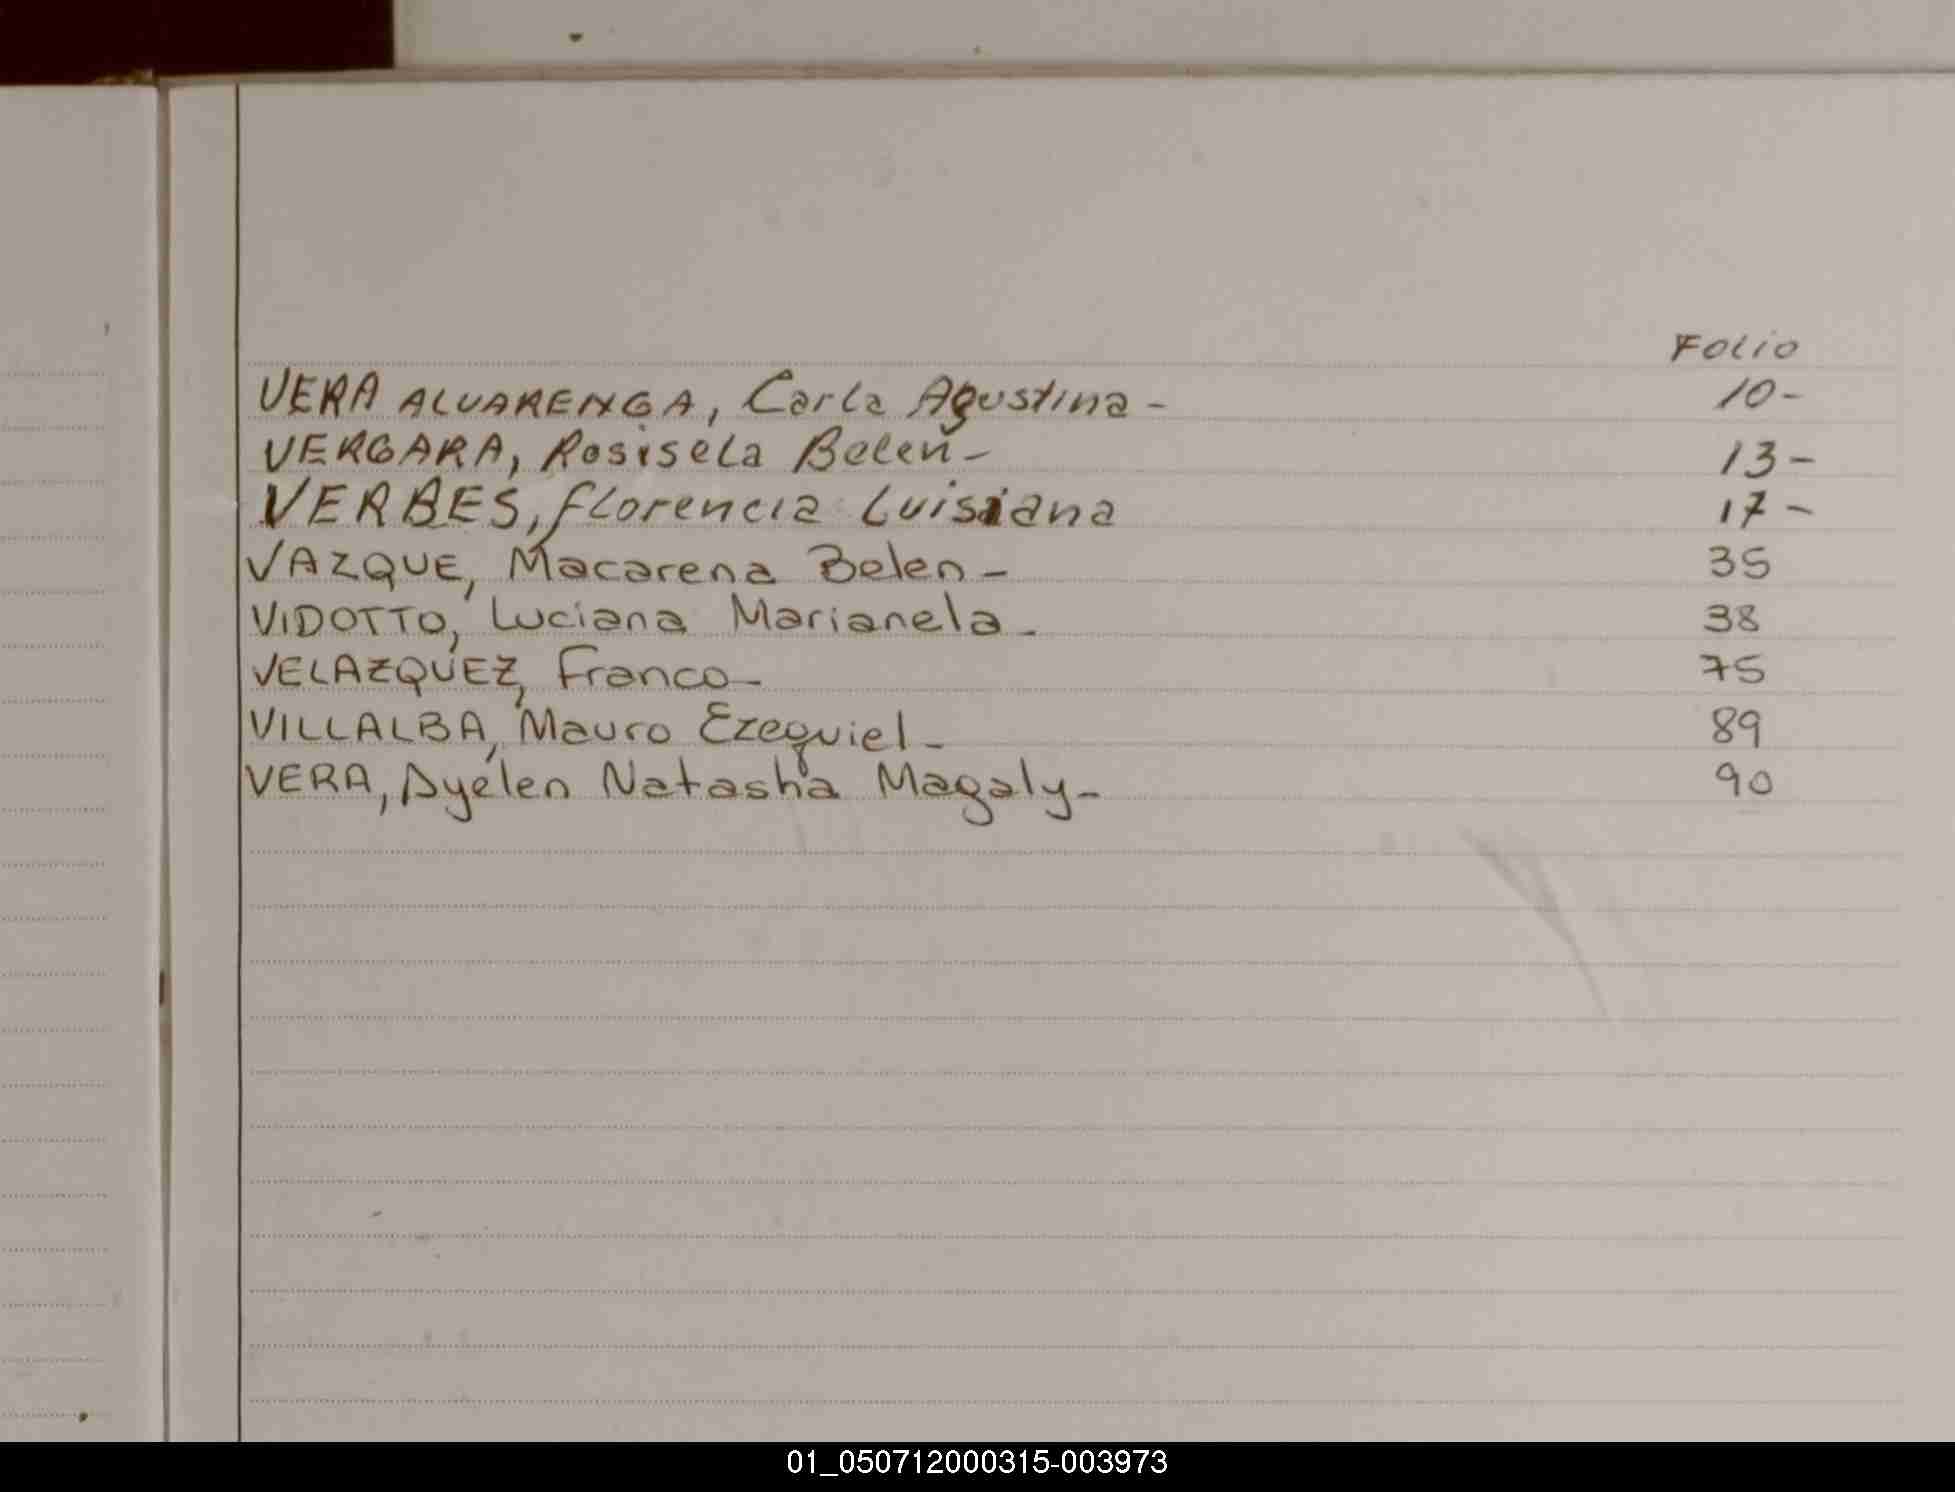 FOLIO
VERA ALVARENGA, Carla Agustina - 10-
VERGARA, Rosisela Belen - 13-
VERBES, Florencia Luisiana 17-
VAZQUE, Macarena Belen - 35
VIDOTTO, Luciana Marianela - 38
VELAZQUEZ, Franco - 75
VILLALBA, Mauro Ezequiel - 89
VERA, Ayelen Natasha Magaly - 90
01_050712000315-003973